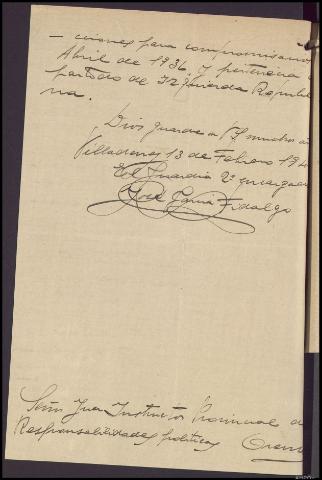 -ciones para compromisarios
Abril de 1936, y pertenecia a
partido de Izquierda Republica
na.
Dios guarde a VS muchos a
Villadevos 13 de Febrero 194
El Guardia 2º encargado
José Garcia Fidalgo
Señor Juez Instructor Provincial de
Responsabilidades politicas Orense